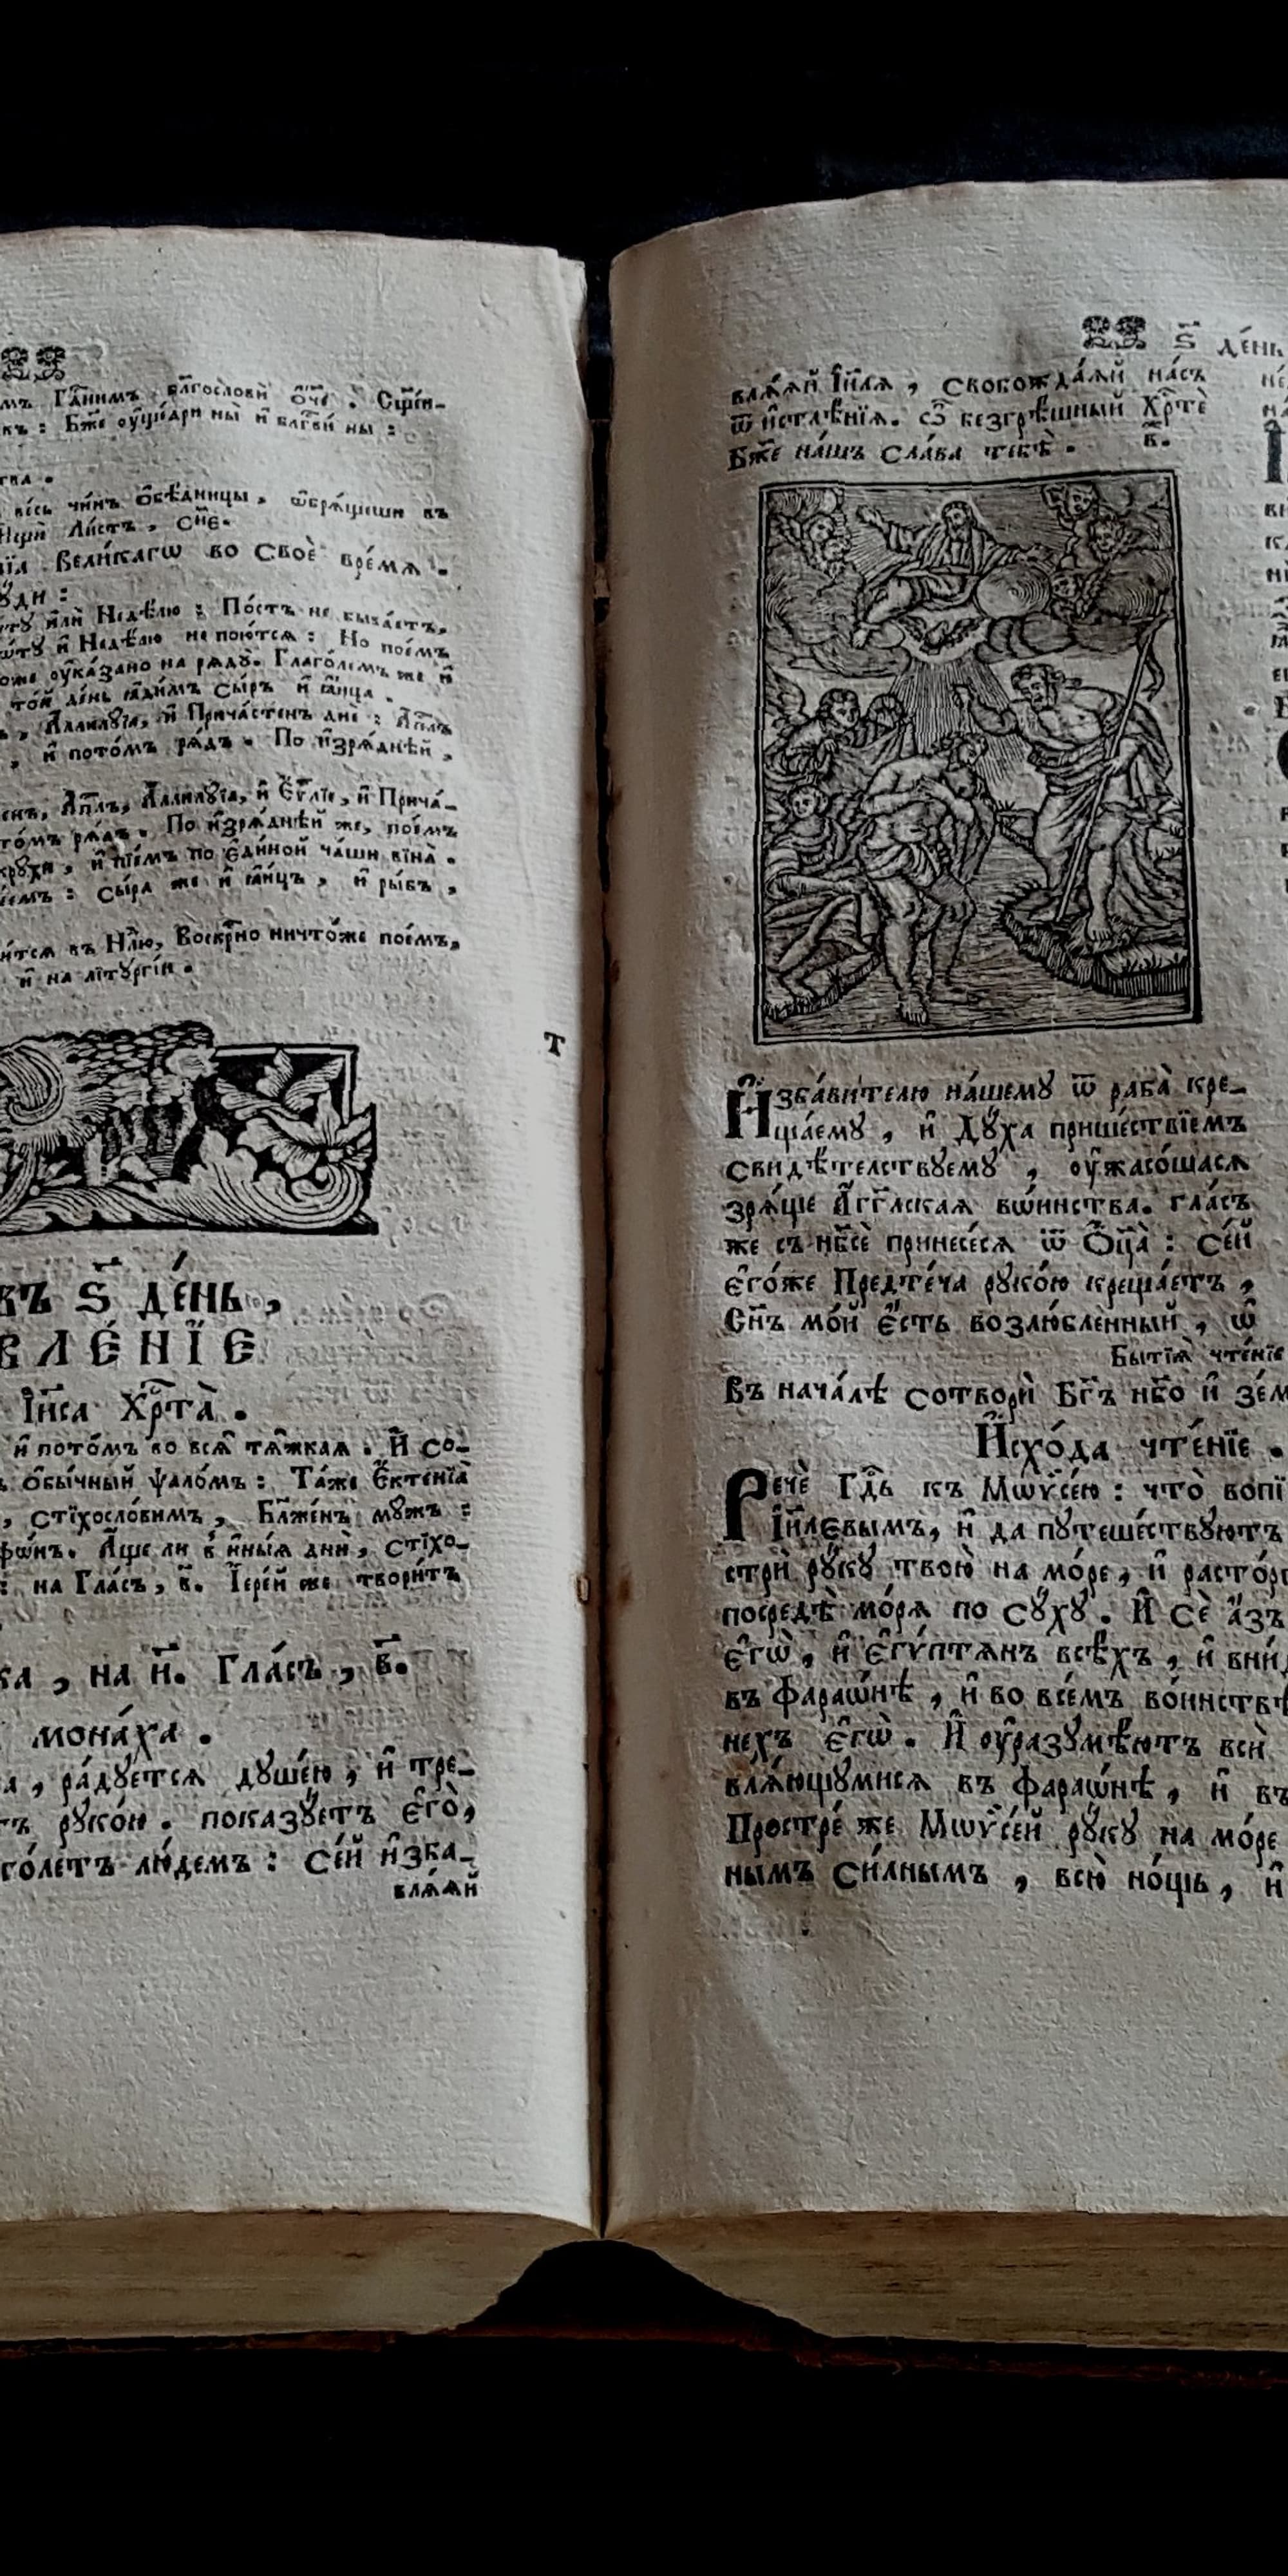 мъ Гднимъ благослови ѻч҃е . Сщ҃ен-
къ : Бж҃е ᲂущедри ны и бл҃гви ны :
тва .
весь чинъ Обѣдницы , ѡбрящеши въ
Листъ , сн҃е .
їа Великагѡ во Своѐ вре́мѧ .
ꙋди :
ту или Недѣлю : По́стъ не быва́етъ ,
ѡту и҆ Недѣлю не пою́тсѧ : Но пое́мъ
оже ᲂука́зано на рѧдꙋ̀ . Глаго́лемъ же и҆
той де́нь ꙗди́мъ Сы́ръ и҆ ꙗи́ца .
, Аллилꙋ́їа , и҆ Прича́стенъ днѐ : Ап҃лъ
, и҆ пото́мъ рѧ́дъ . По и҆зрѧ́днѣй ,
енъ , Ап҃лъ , Аллилꙋ́їа , и҆ Еѵ҃лїе , и҆ Прича́-
то́мъ рѧ́дъ . По и҆зрѧ́днѣй же , пое́мъ
крꙋхи , и҆ пїе́мъ по є҆ди́ной ча́ши вїна̀ .
е́емъ : сы́ра же и҆ ꙗи́цъ , и҆ ры́бъ ,
и́тсѧ въ Нл҃ю , Воскр҃но ничто́же пое́мъ ,
и҆ на лїтꙋргі́и .
въ ѕ҃ де́нь ,
вле́нїе
Іи҃са Хрⷭ҇та̀ .
и҆ пото́мъ во всѧ̑ тѧ̑жкаѧ . И҆ со-
ѻ҆бы́чный ѱало́мъ : Та́же Є҆ктенїа̀
, стїхосло́вимъ , Бл҃же́нъ мꙋ́жъ :
фѡ́нъ . А҆́ще ли в҃ и҆ны́ѧ дни̑ , стїхо-
: на Гла́съ , в҃ . І҆ере́й же твори́тъ
ка , на и҃ . Гла́съ , в҃ .
мона́ха .
а , ра́дꙋетсѧ дꙋше́ю , и҆ тре-
тъ рꙋко́ю . показꙋ́етъ є҆го̀ ,
го́летъ лю́демъ : се́й и҆зба-
влѧ́ѧй
ѕ҃ де́нь
влѧ́ѧй І҆и҃лѧ , свобожда́ѧй на́съ
ѿ и҆стлѣ́нїѧ . ѽ безгрѣ́шный Хрⷭ҇тѐ
Бж҃е на́шъ сла́ва тебѣ̀ . в҃ .
И҆зба́вителю на́шемꙋ ѿ раба̀ кре-
ща́емꙋ , и҆ Дꙋ́ха прише́ствїемъ
свидѣ́телствꙋемꙋ , ᲂу҆жасо́шасѧ
зрѧ́ще А҆́гг҃лскаѧ вѡ́инства . гла́съ
же съ нб҃сѐ принесе́сѧ ѿ Ѻ҆ц҃а̀ : се́й
є҆го́же Предте́ча рꙋко́ю креща́етъ ,
Сн҃ъ мо́й є҆́сть возлю́бленный , ѡ҆
Бытїѧ̀ чте́нїе
Въ нача́лѣ сотворѝ Бг҃ъ нб҃о и҆ зе́м
И҆схо́да чте́нїе .
Речѐ Гдⷭ҇ь къ Мѡѷсе́ю : что̀ вопї
І҆и҃левымъ , и҆ да пꙋтеше́ствꙋютъ
стрѝ рꙋ́кꙋ твою̀ на мо́ре , и҆ расто́рг
посредѣ̀ мо́рѧ по сꙋ́хꙋ . И҆ сѐ а҆́зъ
є҆гѡ̀ , и҆ є҆гѵ́птѧнъ всѣ́хъ , и҆ вни́д
въ фараѡ́нѣ , и҆ во все́мъ во́инствѣ
нехъ є҆гѡ̀ . И҆ ᲂу҆разꙋмѣ́ютъ всѝ
влѧ́ющꙋмисѧ въ фараѡ́нѣ , и҆ въ
Простре́ же Мѡѷсе́й рꙋ́кꙋ на мо́ре
нымъ си́лнымъ , всю̀ но́щь , и҆